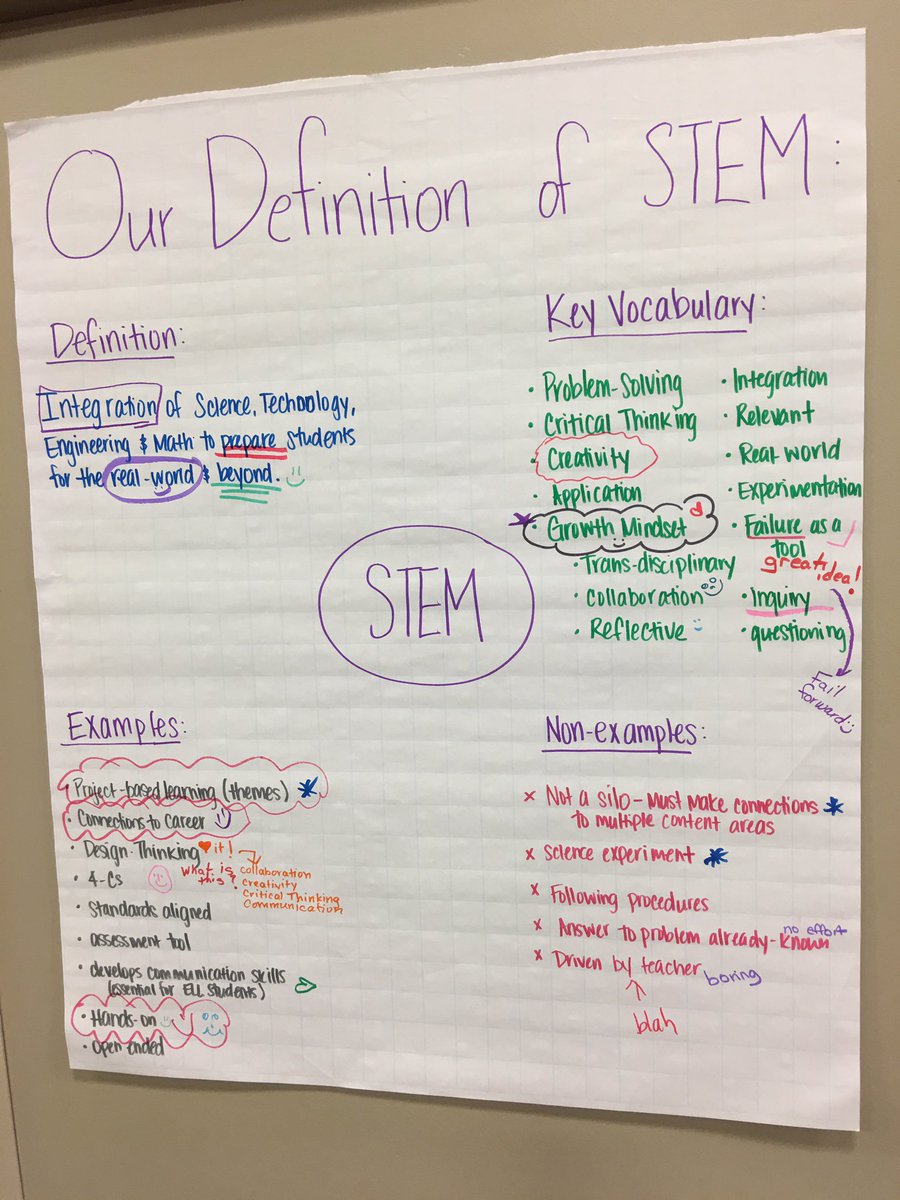 Our Definition of STEM:
Definition:
Integration of Science, Technology,
Engineering & Math to prepare students
for the real-world & beyond.
Key Vocabulary:
• Problem-Solving
• Critical Thinking
• Creativity
• Application
• Growth Mindset
• Trans-disciplinary
• collaboration
• Reflective
• Integration
• Relevant
• Real-world
• Experimentation
• Failure as a
tool
great
idea!
• Inquiry
• questioning
Fail
forward
STEM
Examples:
• Project-based learning (themes)
• Connections to Career
• Design-Thinking it!
• 4-Cs
What is
this?
collaboration
creativity
Critical Thinking
Communication
• Standards aligned
• assessment tool
• develops communication skills
(essential for ELL students)
• Hands-on
• Open Ended
Non-examples:
x Not a silo - Must make connections
to multiple content areas
x Science experiment
x Following procedures
x Answer to problem already-known
no effort
x Driven by teacher
boring
blah